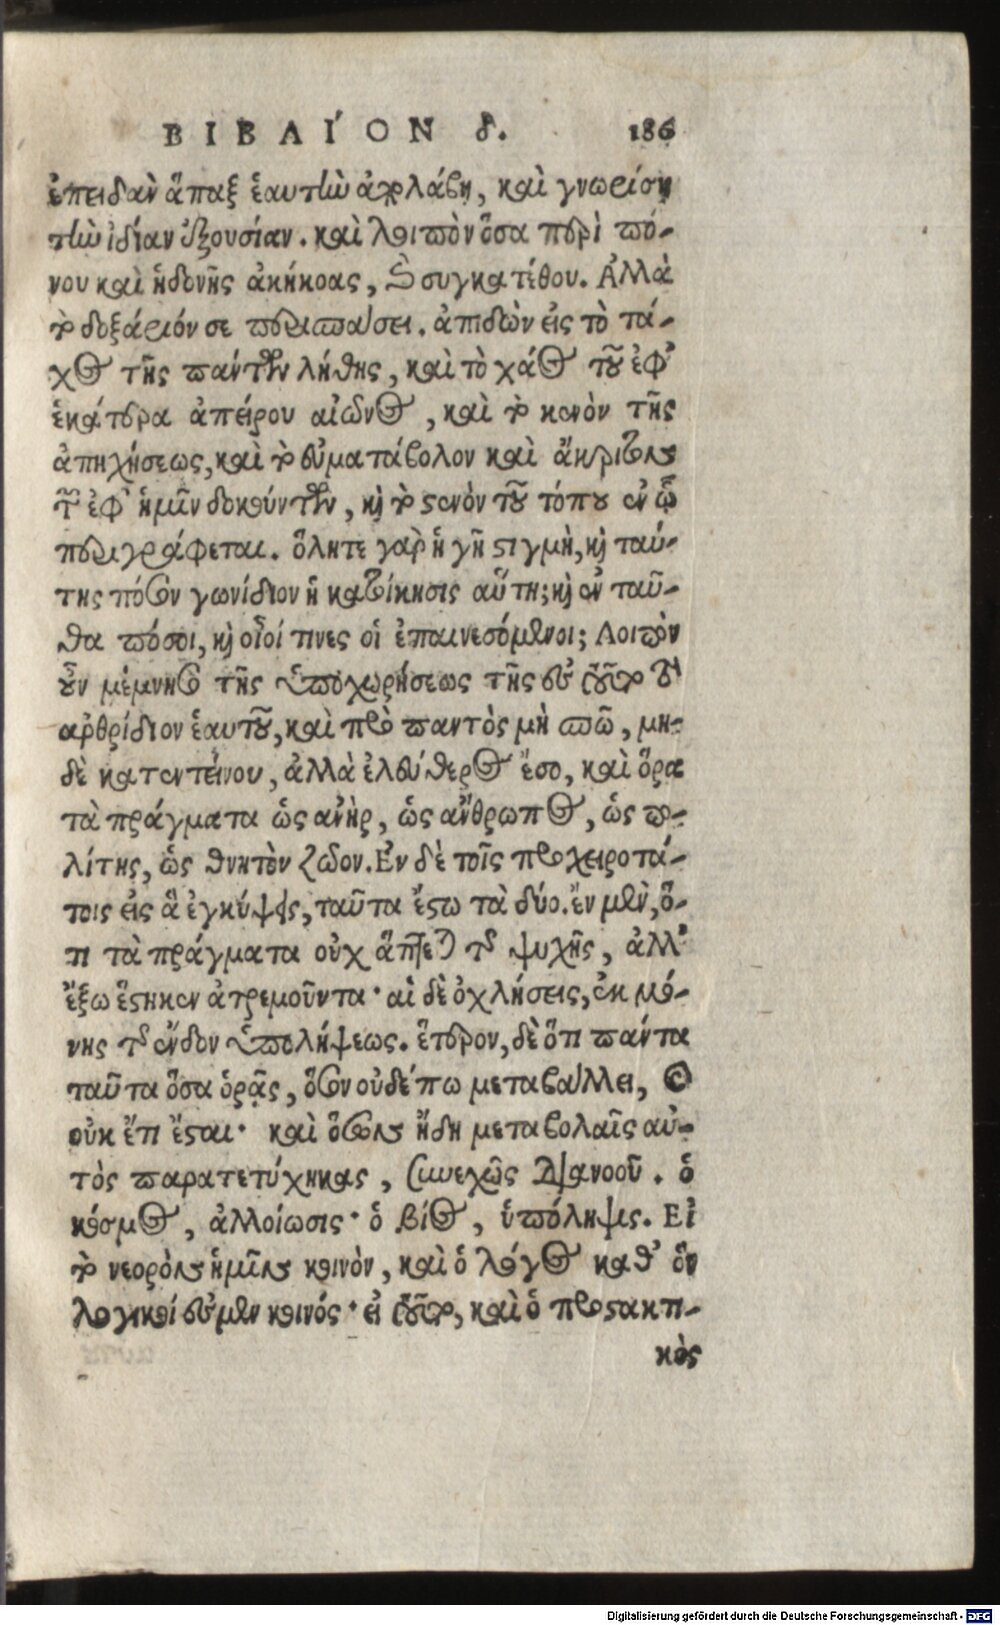 ΒΙΒΛΊΟΝ δ. 186
ἐπειδὰν ἅπαξ ἑαυτὴν ἀπολάβῃ, καὶ γνωρίσῃ
τὴν ἰδίαν ἐξουσίαν. καὶ λοιπὸν ὅσα περὶ πό-
νου καὶ ἡδονῆς ἀκήκοας, καὶ συγκατέθου. Ἀλλὰ
τὸ δοξάριόν σε περισπάσει. ἀπιδὼν εἰς τὸ τά-
χος τῆς πάντων λήθης, καὶ τὸ χάος τοῦ ἐφ'
ἑκάτερα ἀπείρου αἰῶνος, καὶ τὸ κενὸν τῆς
ἀπηχήσεως, καὶ τὸ εὐματάβολον καὶ ἄκριτον
τῶν ἐφ' ἡμῖν δοκούντων, καὶ τὸ στενὸν τοῦ τόπου ἐν ᾧ
περιγράφεται. ὅλητε γὰρ ἡ γῆ στιγμὴ, καὶ ταύ-
της πόσον γωνίδιον ἡ κατοίκησις αὕτη; καὶ ἐνταῦ-
θα πόσοι, καὶ οἷοί τινες οἱ ἐπαινεσόμενοι; Λοιπὸν
οὖν μέμνησο τῆς ὑποχωρήσεως τῆς εἰς τοῦτο τὸ
ἀρθρίδιον ἑαυτοῦ, καὶ πρὸ παντὸς μὴ σπῶ, μη-
δὲ κατεντείνου, ἀλλὰ ἐλεύθερος ἔσο, καὶ ὅρα
τὰ πράγματα ὡς ἀνὴρ, ὡς ἄνθρωπος, ὡς πο-
λίτης, ὡς θνητὸν ζῶον. Ἐν δὲ τοῖς προχειροτά-
τοις εἰς ἃ ἐγκύψεις, ταῦτα ἔστω τὰ δύο. ἓν μὲν, ὅ-
τι τὰ πράγματα οὐχ ἅπτεται τῆς ψυχῆς, ἀλλ'
ἔξω ἕστηκεν ἀτρεμοῦντα· αἱ δὲ ὀχλήσεις, ἐκ μό-
νης τῆς ἔνδον ὑπολήψεως. ἕτερον, δὲ ὅτι πάντα
ταῦτα ὅσα ὁρᾷς, ὅσον οὐδέπω μεταβάλλει, καὶ
οὐκ ἔτι ἔσται· καὶ ὅσων ἤδη μεταβολαῖς αὐ-
τὸς παρατετύχηκας, συνεχῶς διανοοῦ. ὁ
κόσμος, ἀλλοίωσις· ὁ βίος, ὑπόληψις. Εἰ
τὸ νοερὸν ἡμῖν κοινὸν, καὶ ὁ λόγος καθ' ὃν
λογικοί ἐσμεν κοινός· εἰ τοῦτο, καὶ ὁ προστακτι-
κὸς
Digitalisierung gefördert durch die Deutsche Forschungsgemeinschaft - DFG